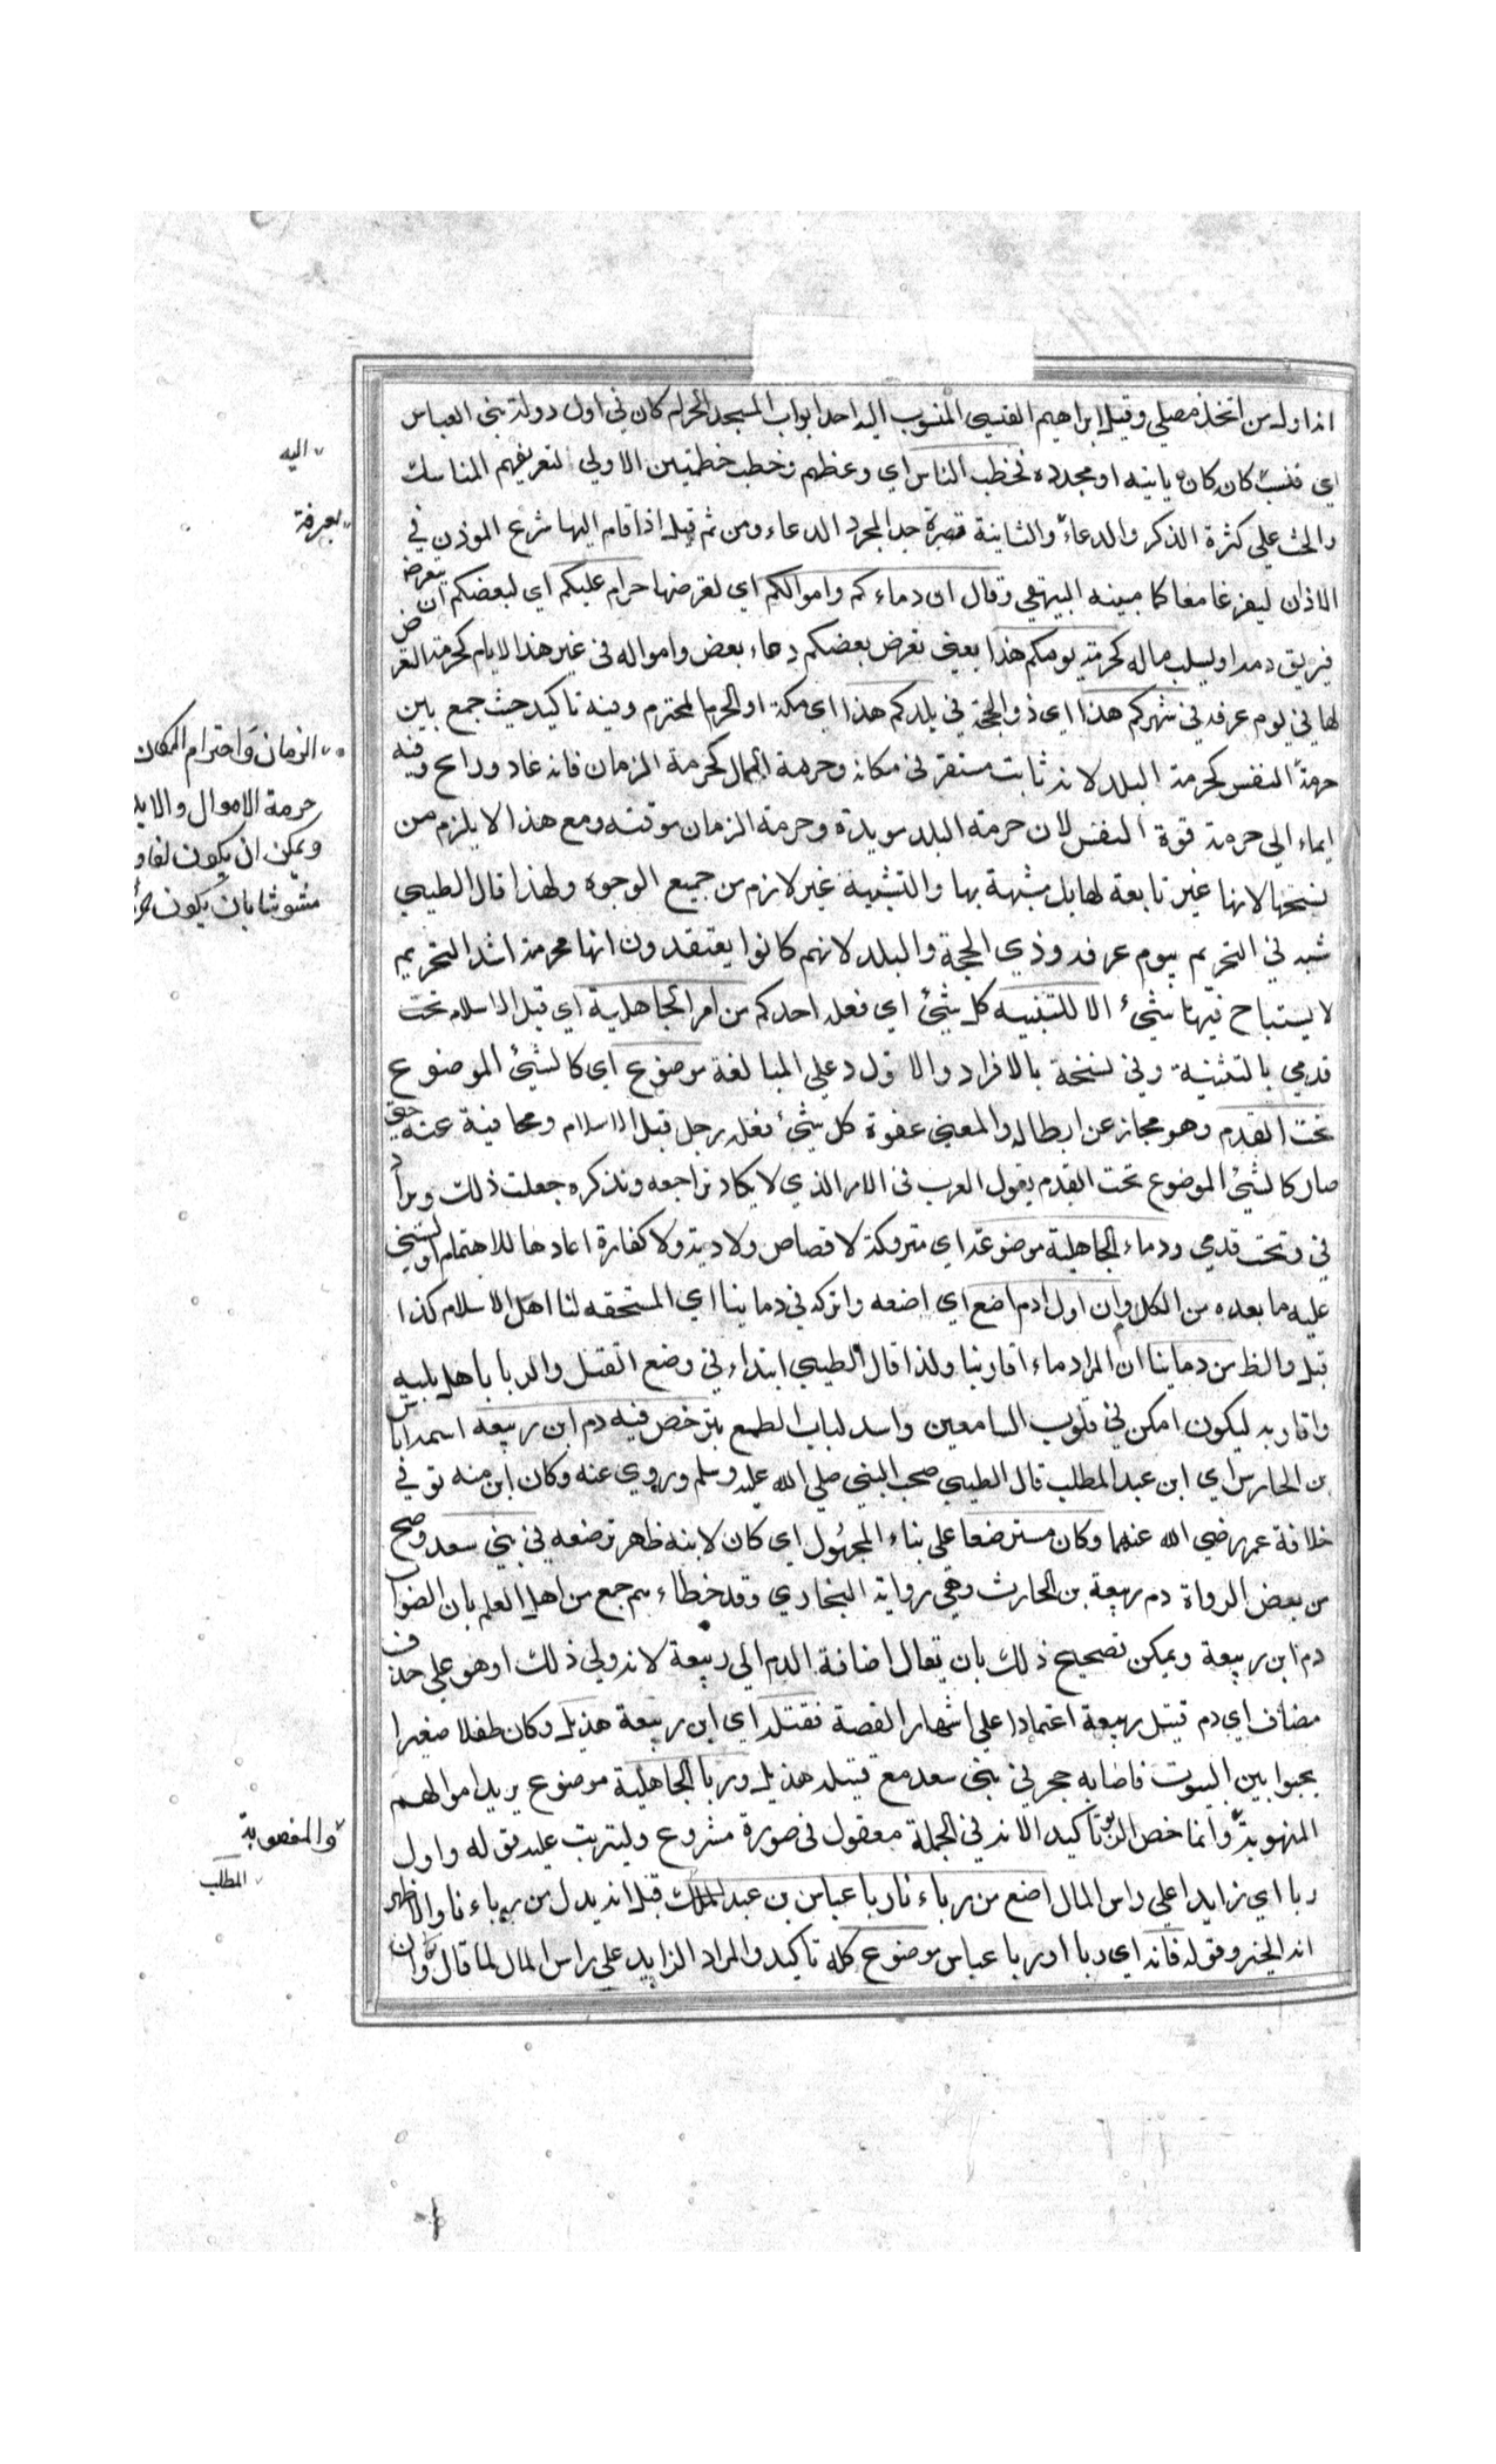 انه اول من اتخذ مصلي وقيل ابراهيم القيسي المنسوب اليه احد ابواب المسجد الحرام كان في اول دولة بني العباس
اي فنسب كان كان بانيه او مجدده فخطب الناس اي وعظهم وخطب خطبتين الاولي لتعريفهم المناسك
والحث علي كثرة الذكر والدعاء والثانية قصيرة جدا لمجرد الدعاء ومن ثم قيل اذا قام اليها شرع الموذن في
الاذان ليفرغا معا كما مبينه البيهقي وقال ان دماءكم واموالكم اي لعرضها حرام عليكم اي لبعضكم ان يتعرض
فيريق دمه او يسلب ماله كحرمة يومكم هذا يعني تعرض بعضكم دماء بعض وامواله في غير هذا الايام كحرمة التعرض
لها في يوم عرفه في شهركم هذا اي ذو الحجة في بلدكم هذا اي مكة او الحرم المحترم وفيه تاكيد حيث جمع بين
حرمة النفس كحرمة البلد لانه ثابت مستقر في مكانه وحرمة المال كحرمة الزمان فانه غاد ورايح وفيه
ايماء الي حرمة قوة النفس لان حرمة البلد مويدة وحرمة الزمان موقته ومع هذا لا يلزم من
نسخها لانها غير تابعة لها بل مشبهة بها والتشبيه غير لازم من جميع الوجوه ولهذا قال الطيبي
شبه في التحريم بيوم عرفه وذي الحجة والبلد لانهم كانوا يعتقدون انها محرمة اشد التحريم
لا يستباح فيها شيء الا للتنبيه كل شيء اي فعله احدكم من امر الجاهلية اي قبل الاسلام تحت
قدمي بالتثنية وفي نسخة بالافراد والاول دعلي المبالغة موضوع اي كالشيء الموضوع
تحت القدم وهو مجاز عن ابطاله والمعني عفوة كل شيء فعله رجل قبل الاسلام ومحافية عنه حتي
صار كالشيء الموضوع تحت القدم يقول العرب في الامر الذي لا يكاد تراجعه وتذكره جعلت ذلك وبراد
في وتحت قدمي ودماء الجاهلية موضوعة اي متروكة لا قصاص ولا دية ولا كفارة اعادها للاهتمام او ليبني
عليه ما بعده من الكلام وان اول دم اضع اي اضعه واتركه في دماينا اي المستحقه لنا اهل الاسلام كذا
قيل والظ من دماينا ان المراد دماء اقاربنا ولذا قال الطيبي ابتداء في وضع القتل والربا باهل بيته
واقاربه ليكون امكن في قلوب السامعين واسد لباب الطمع بترخص فيه دم ابن ربيعه اسمه اياس
بن الحارس اي ابن عبد المطلب قال الطيبي صحب النبي صلي الله عليه وسلم وروي عنه وكان ابن منه توفي
خلافة عمر رضي الله عنهما وكان مسترضعا علي بناء المجهول اي كان لابنه ظهر ترضعه في بني سعد وصح
من بعض الرواة دم ربيعة بن الحارث وهي رواية البخاري وقد خطاءهم جمع من اهل العلم بان الصواب
دم ابن ربيعة ويمكن تصحيح ذلك بان يقال اضافة الدم الي ربيعة لانه ولي ذلك او هو علي حذف
مضاف اي دم قتيل ربيعة اعتمادا علي اشهار القصة فقتله اي ابن ربيعة هذيل وكان طفلا صغيرا
يحبوا بين البيوت فاصابه حجر في بني سعد مع قتيله هذيل وربا الجاهلية موضوع يريد اموالهم
المنهوبة وانما خص الربو تاكيد الانه في الجملة معقول في صورة مشروع وليترتب عليه قوله واول
ربا اي زايدا علي راس المال اضع من رباءنا ربا عباس بن عبد الملك قيل انه بدل من رباءنا والاظهر
انه الخبر وقوله فانه اي ربا او ربا عباس موضوع كله تاكيد والمراد الزايد علي راس المال لما قال وان
اليه
بعرفة
الزمان واحترام المكان
حرمة الاموال والابد
ويمكن ان يكون لفا و
مشوشا بان يكون
والمغصوبة
المطلب